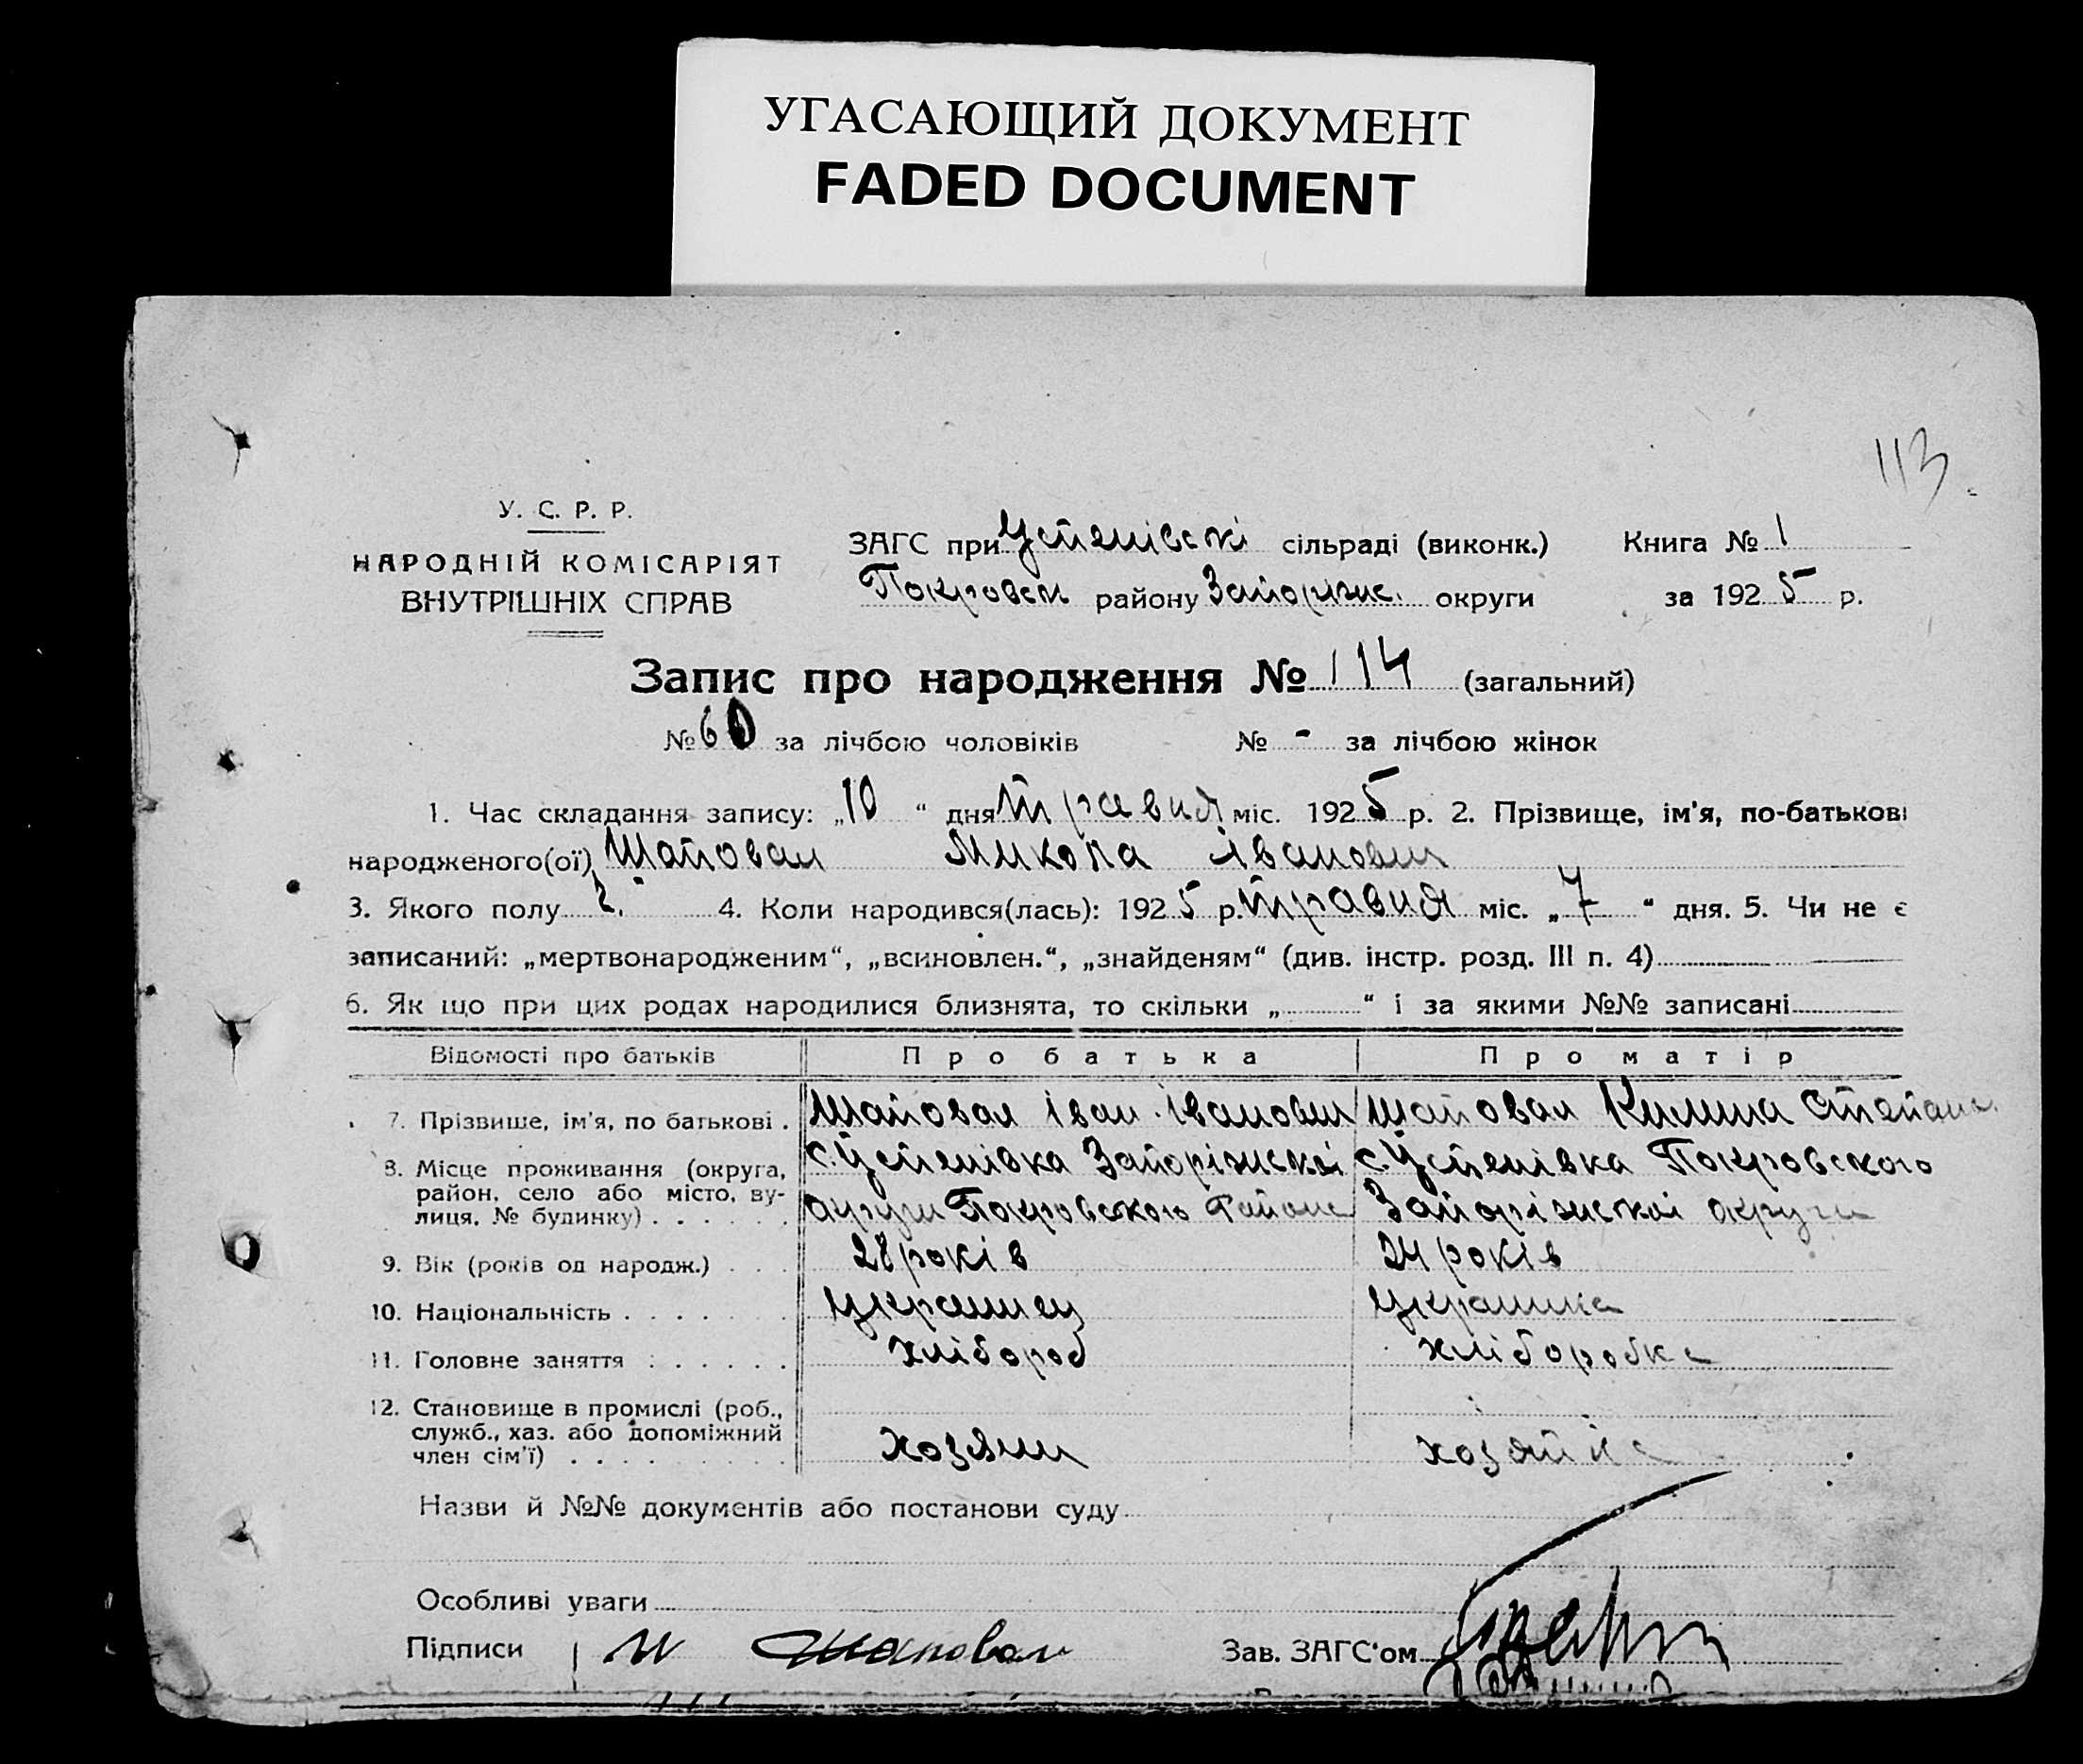 УГАСАЮЩИЙ ДОКУМЕНТ
FADED DOCUMENT
113
У. С. Р. Р.
НАРОДНІЙ КОМІСАРІЯТ
ВНУТРІШНІХ СПРАВ
ЗАГС при Устенівскі сільраді (виконк.) Книга № 1
Покровск району Запоріжс. округи за 1925 р.
Запис про народження № 114 (загальний)
№ 60 за лічбою чоловіків № - за лічбою жінок
1. Час складання запису: „10“ дня травня міс. 1925 р. 2. Прізвище, ім'я, по-батькові
народженого(ої) Шаповал Микола Іванович
3. Якого полу ч. 4. Коли народився(лась): 1925 р. травня міс. „7“ дня. 5. Чи не є
записаний: „мертвонародженим“, „всиновлен.“, „знайденям“ (див. інстр. розд. III п. 4)
6. Як що при цих родах народилися близнята, то скільки „ “ і за якими №№ записані
Відомості про батьків Про батька Про матір
7. Прізвише, ім'я, по батькові . Шаповал Іван Іванович Шаповал Килина Степано.
8. Місце проживання (округа, район, село або місто, ву-
лиця, № будинку) с. Устенівка Запоріжскої с. Устенівка Покровского
округи Покровського Района Запоріжської округи
9. Вік (років од народж.) 28 років 24 років
10. Національність Украинец Украинка
11. Головне заняття хлібороб хліборобка
12. Становище в промислі (роб.,
служб., хаз. або допоміжний
член сім'ї) хозяин хозяйка
Назви й №№ документів або постанови суду
Особливі уваги
Підписи И Шаповал Зав. ЗАГС'ом